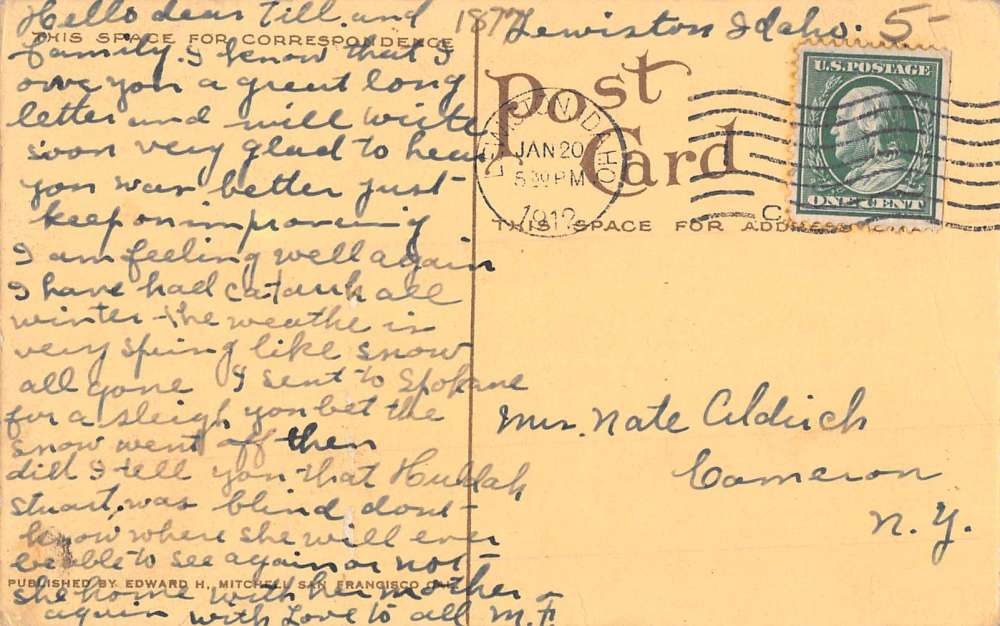 Hello dear Till and
THIS SPACE FOR CORRESPONDENCE
family. I know that I
owe you a great long
letter and will write
soon very glad to hear
you was better just
keep on improving
I am feeling well again
I have had catarrh all
winter the weathe is
very spring like snow
all gone I sent to Spokane
for a sleigh you bet the
snow went off then
did I tell you that Huldah
Stuart was blind dont
know where she will ever
be able to see again or not
PUBLISHED BY EDWARD H. MITCHELL SAN FRANCISCO CAL.
she home with her mother
again with Love to all M. F.
1877
Lewiston Idaho. 5-
Post
Card
LEWISTON IDAHO
JAN 20
5 PM
1912
U.S. POSTAGE
ONE CENT
THIS SPACE FOR ADDRESS
Mrs. Nate Aldrich
Cameron
N. Y.